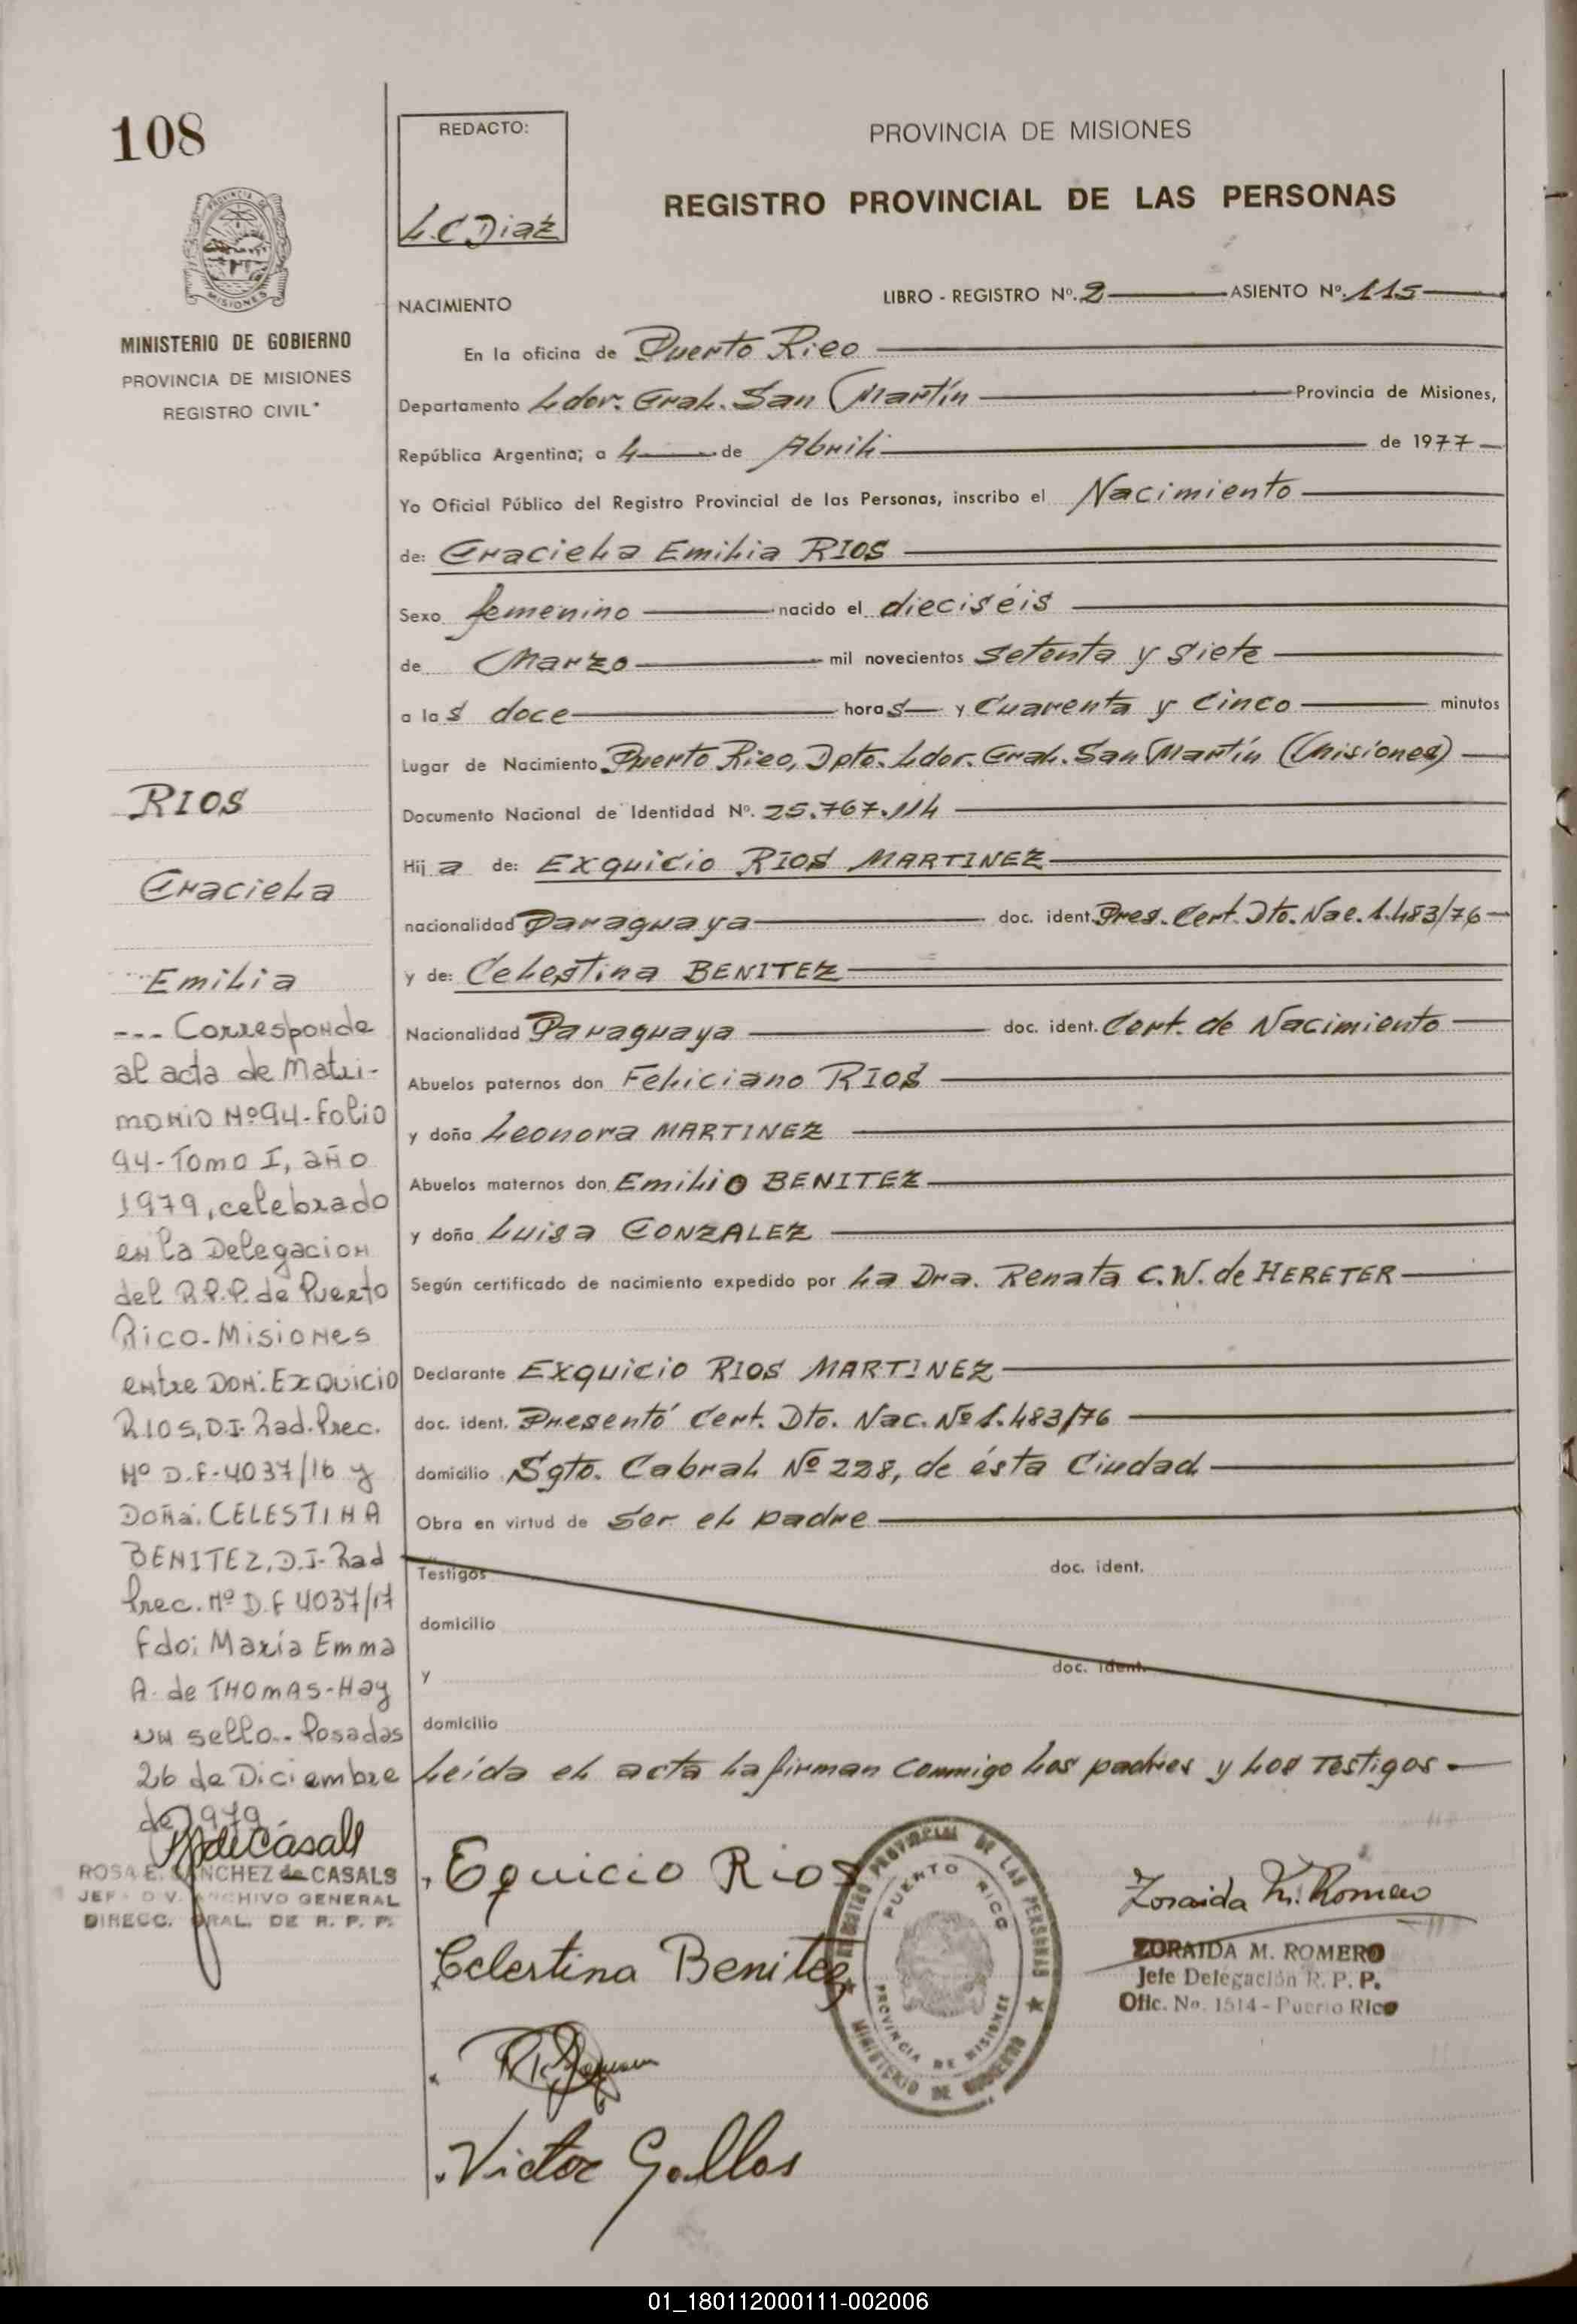 108
REDACTO:
L.C Diaz
PROVINCIA DE MISIONES
REGISTRO PROVINCIAL DE LAS PERSONAS
PROVINCIA DE
MISIONES
MINISTERIO DE GOBIERNO
PROVINCIA DE MISIONES
REGISTRO CIVIL
NACIMIENTO
LIBRO - REGISTRO Nº. 2 ASIENTO Nº. 115
En la oficina de Puerto Rico
Departamento Ldor. Gral. San Martín Provincia de Misiones,
República Argentina; a 4 de Abril de 1977
Yo Oficial Público del Registro Provincial de las Personas, inscribo el Nacimiento
de: Graciela Emilia RIOS
Sexo femenino nacido el dieciséis
de Marzo mil novecientos setenta y siete
a las doce horas y Cuarenta y Cinco minutos
Lugar de Nacimiento Puerto Rico, Dpto. Ldor. Gral. San Martín (Misiones)
Documento Nacional de Identidad Nº. 25.767.114
Hija de: Exquicio RIOS MARTINEZ
nacionalidad Paraguaya doc. ident. Pres. Cert. Dto. Nac. 1.483/76
y de: Celestina BENITEZ
Nacionalidad Paraguaya doc. ident. Cert. de Nacimiento
Abuelos paternos don Feliciano RIOS
y doña Leonora MARTINEZ
Abuelos maternos don Emilio BENITEZ
y doña Luisa GONZALEZ
Según certificado de nacimiento expedido por la Dra. Renata C.W. de HERETER
Declarante Exquicio RIOS MARTINEZ
doc. ident. Presentó Cert. Dto. Nac. Nº 1.483/76
domicilio Sgto. Cabral Nº 228, de ésta Ciudad
Obra en virtud de ser el padre
Testigos doc. ident.
domicilio
y doc. ident.
domicilio
Leída el acta la firman conmigo los padres y los testigos.
RIOS
Graciela
Emilia
--- Corresponde
al acta de Matri-
monio Nº94-Folio
94-Tomo I, año
1979, celebrado
en la Delegacion
del R.P.P. de Puerto
Rico-Misiones
entre Don: EXQUICIO
RIOS, D.I. Rad. Prec.
Nº D.F-4037/16 y
Doña: CELESTINA
BENITEZ, D.I- Rad
Prec. Nº D.F 4037/17
Fdo: María Emma
A. de THOMAS-Hay
un sello.. Posadas
26 de Diciembre
de 1979
ROSA E. SANCHEZ de CASALS
JEFA DIV. ARCHIVO GENERAL
DIRECC. GRAL. DE R. P. P.
Equicio Rios
Celestina Benitez
Victor Gallas
REGISTRO PROVINCIAL DE LAS PERSONAS
PUERTO RICO
PROVINCIA DE MISIONES
MINISTERIO DE GOBIERNO
Zoraida M. Romero
ZORAIDA M. ROMERO
Jefe Delegación R. P. P.
Ofic. No. 1514 - Puerto Rico
01_180112000111-002006